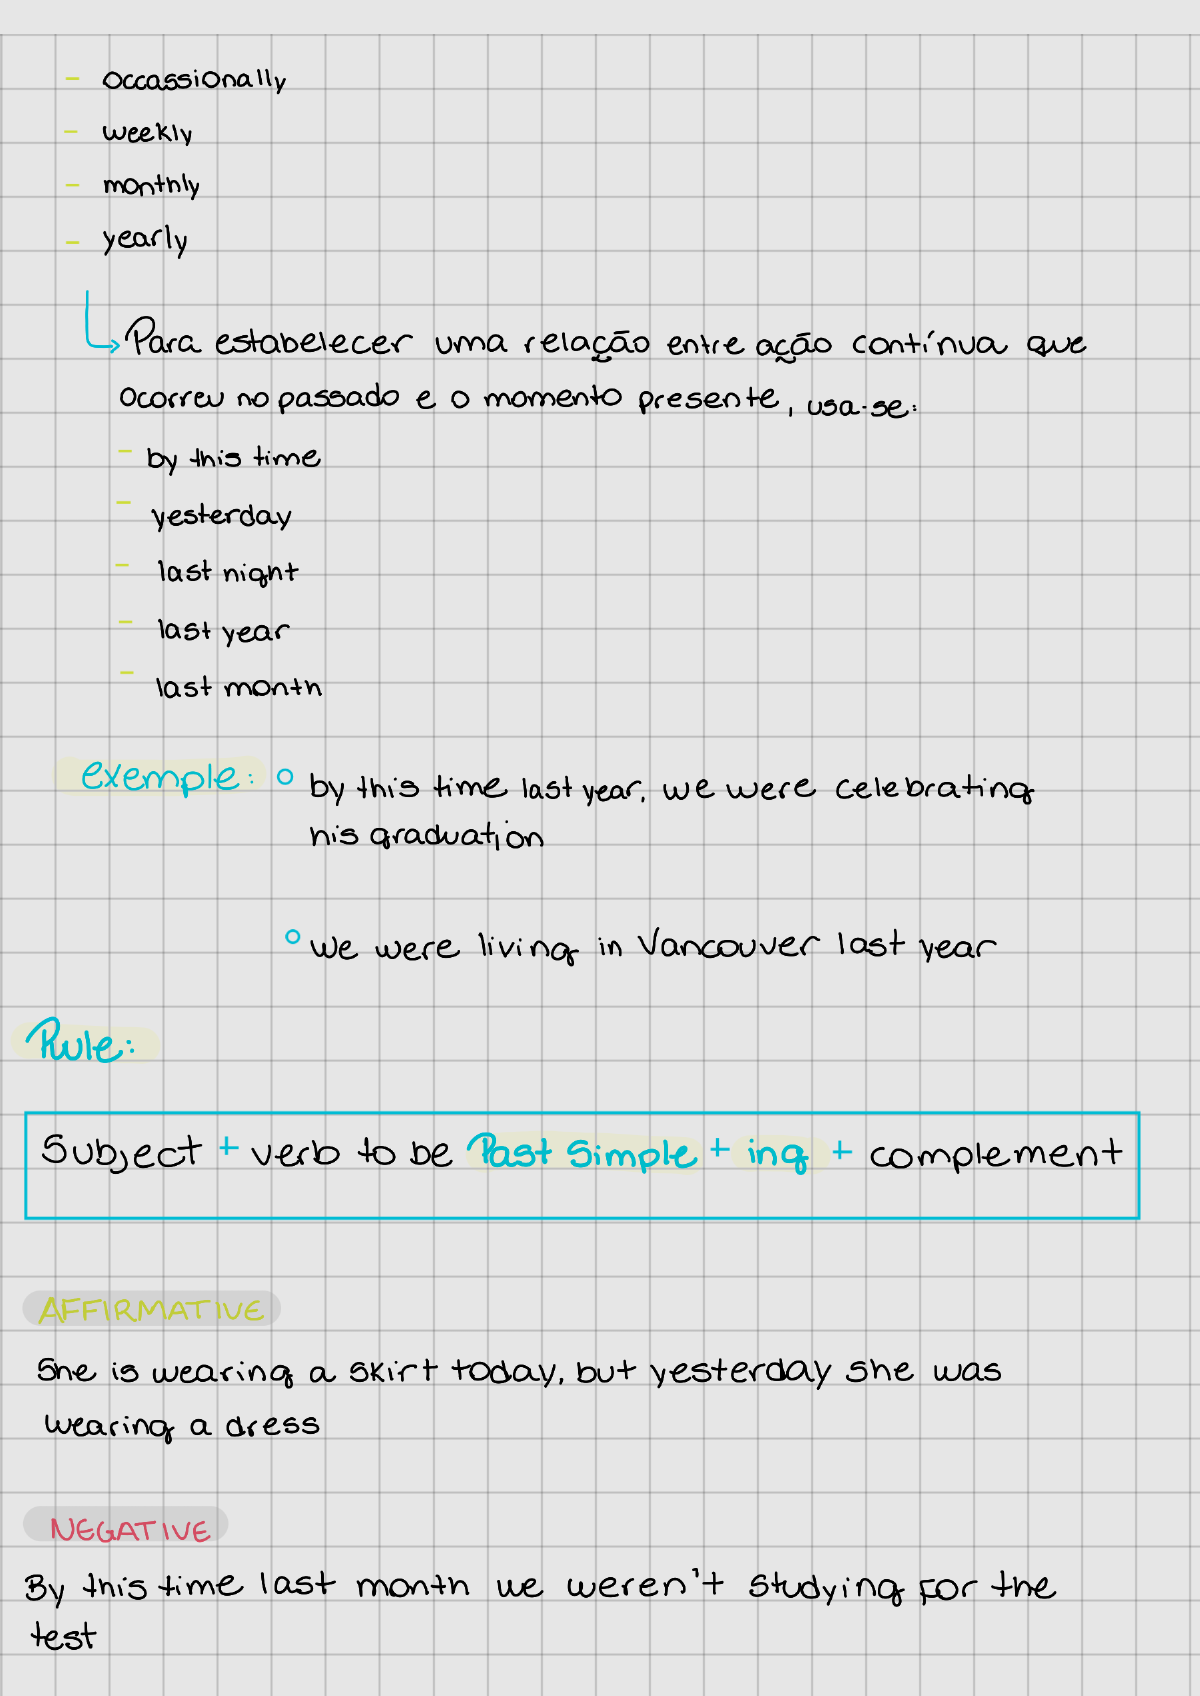 - occassionally
- weekly
- monthly
- yearly
Para estabelecer uma relação entre ação contínua que
ocorreu no passado e o momento presente, usa-se:
- by this time
- yesterday
- last night
- last year
- last month
exemple: by this time last year, we were celebrating
his graduation
we were living in Vancouver last year
Rule:
Subject + verb to be Past Simple + ing + complement
AFFIRMATIVE
She is wearing a skirt today, but yesterday she was
wearing a dress
NEGATIVE
By this time last month we weren't studying for the
test